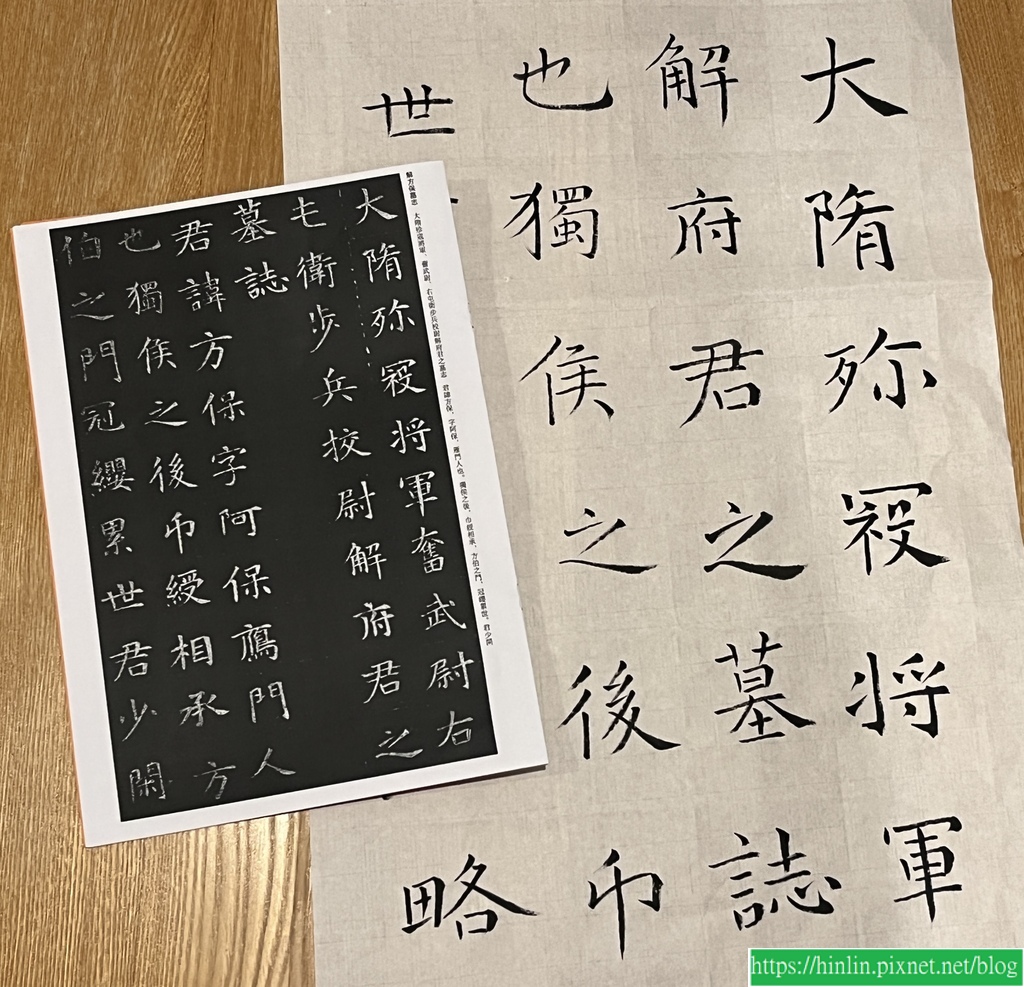 大隋殄寇将軍
解府君之墓誌
也獨侯之後帀
世
略
解方保墓志　大隋殄寇將軍、奮武尉、右屯衛步兵校尉解府君之墓志　君諱方保，字阿保，雁門人也。獨侯之後，巾綬相承，方伯之門，冠纓累世。君少閑
大隋殄寇将軍奮武尉右
屯衛步兵挍尉解府君之
墓誌
君諱方保字阿保鴈門人
也獨侯之後帀綬相承方
伯之門冠纓累世君少閑
https://hinlin.pixnet.net/blog